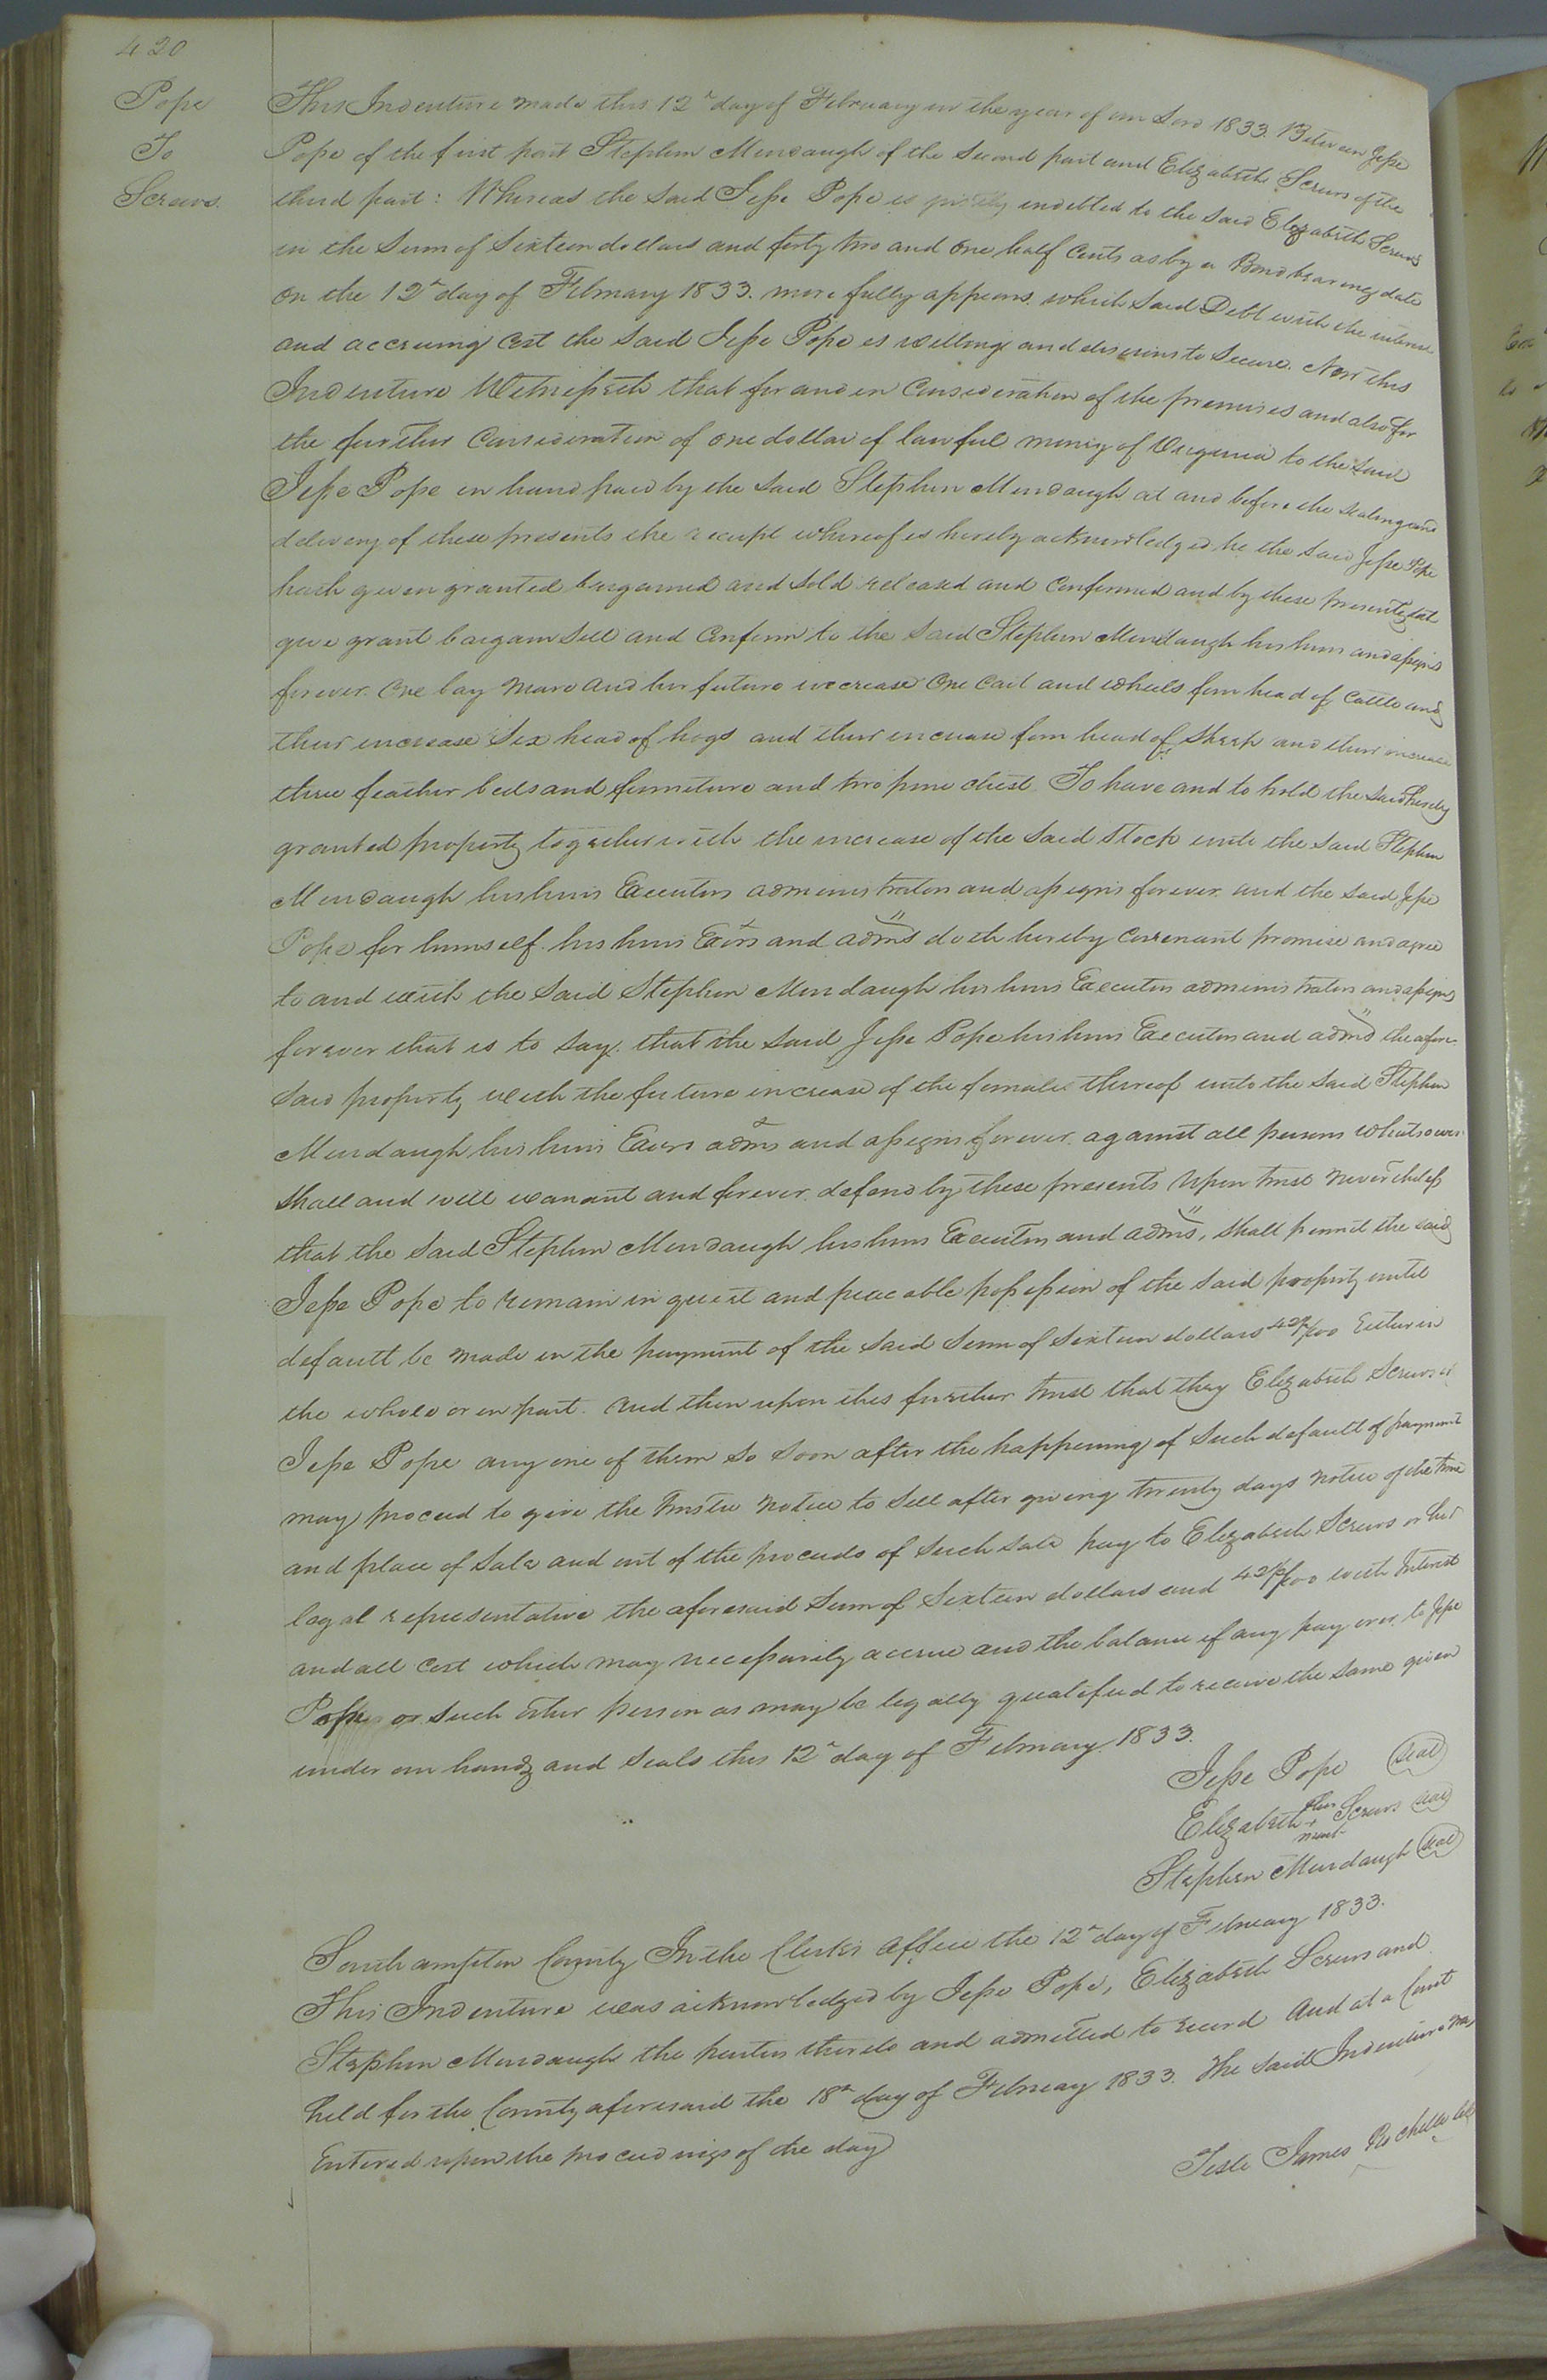 420
Pope
To
Screws.
This Indenture made this 12th day of February in the year of our Lord 1833. Between Jesse
Pope of the first part Stephen Murdaugh of the Second part and Elizabeth Screws of the
third part: Whereas the said Jesse Pope is justly indebted to the said Elizabeth Screws
in the Sum of Sixteen dollars and forty two and one half Cents as by a Bond bearing date
on the 12th day of February 1833. more fully appears. which said Debt with the interest
and accruing Cost the said Jesse Pope is willing and desirous to Secure. Now this
Indenture Witnesseth that for and in Consideration of the premises and also for
the further Consideration of one dollar of lawful money of Virginia to the said
Jesse Pope in hand paid by the said Stephen Murdaugh at and before the sealing and
delivery of these presents the receipt whereof is hereby acknowledged he the said Jesse Pope
hath given granted bargained and sold released and Confirmed and by these presents doth
give grant bargain sell and Confirm to the said Stephen Murdaugh his heirs and assigns
forever. One bay mare and her future increase One Cart and wheels four head of Cattle and
their increase Six head of hogs and their increase four head of Sheep and their increase
three feather beds and furniture and two pine chest. To have and to hold the said hereby
granted property together with the increase of the said Stock unto the said Stephen
Murdaugh his heirs Executors administrators and assigns forever. and the said Jesse
Pope for himself his heirs Exōrs and adm̄s doth hereby Covenant promise and agree
to and with the said Stephen Murdaugh his heirs Executors administrators and assigns
forever that is to say. that the said Jesse Pope his heirs Executors and adm̄s the afore-
said property with the future increase of the females thereof unto the said Stephen
Murdaugh his heirs Exors adm̄s and assigns forever. against all persons whatsoever
shall and will warrant and forever defend by these presents Upon trust nevertheless
that the said Stephen Murdaugh his heirs Executors and adm̄s, shall permit the said
Jesse Pope to remain in quiet and peaceable possession of the said property until
default be made in the payment of the said Sum of Sixteen dollars 42½/100 Either in
the whole or in part. And then upon this further trust that they Elizabeth Screws or
Jesse Pope any one of them so soon after the happening of such default of payment
may proceed to give the Trustee notice to sell after giving twenty days notice of the time
and place of Sale and out of the proceeds of such sale pay to Elizabeth Screws or her
legal representative the aforesaid Sum of Sixteen dollars and 42½/100 with Interest
and all Cost which may necessarily accrue and the balance if any pay over to Jesse
Pope or such other person as may be legally qualified to receive the same given
under our hands and seals this 12th day of February. 1833.
Jesse Pope (seal)
Elizabeth her + mark Screws (seal)
Stephen Murdaugh (seal)
Southampton County In the Clerks Office the 12th day of February 1833.
This Indenture was acknowledged by Jesse Pope, Elizabeth Screws and
Stephen Murdaugh the parties thereto and admitted to record And at a Court
held for the County aforesaid the 18th day of February 1833. The said Indenture was
Entered upon the proceedings of the day
Teste James Rochelle